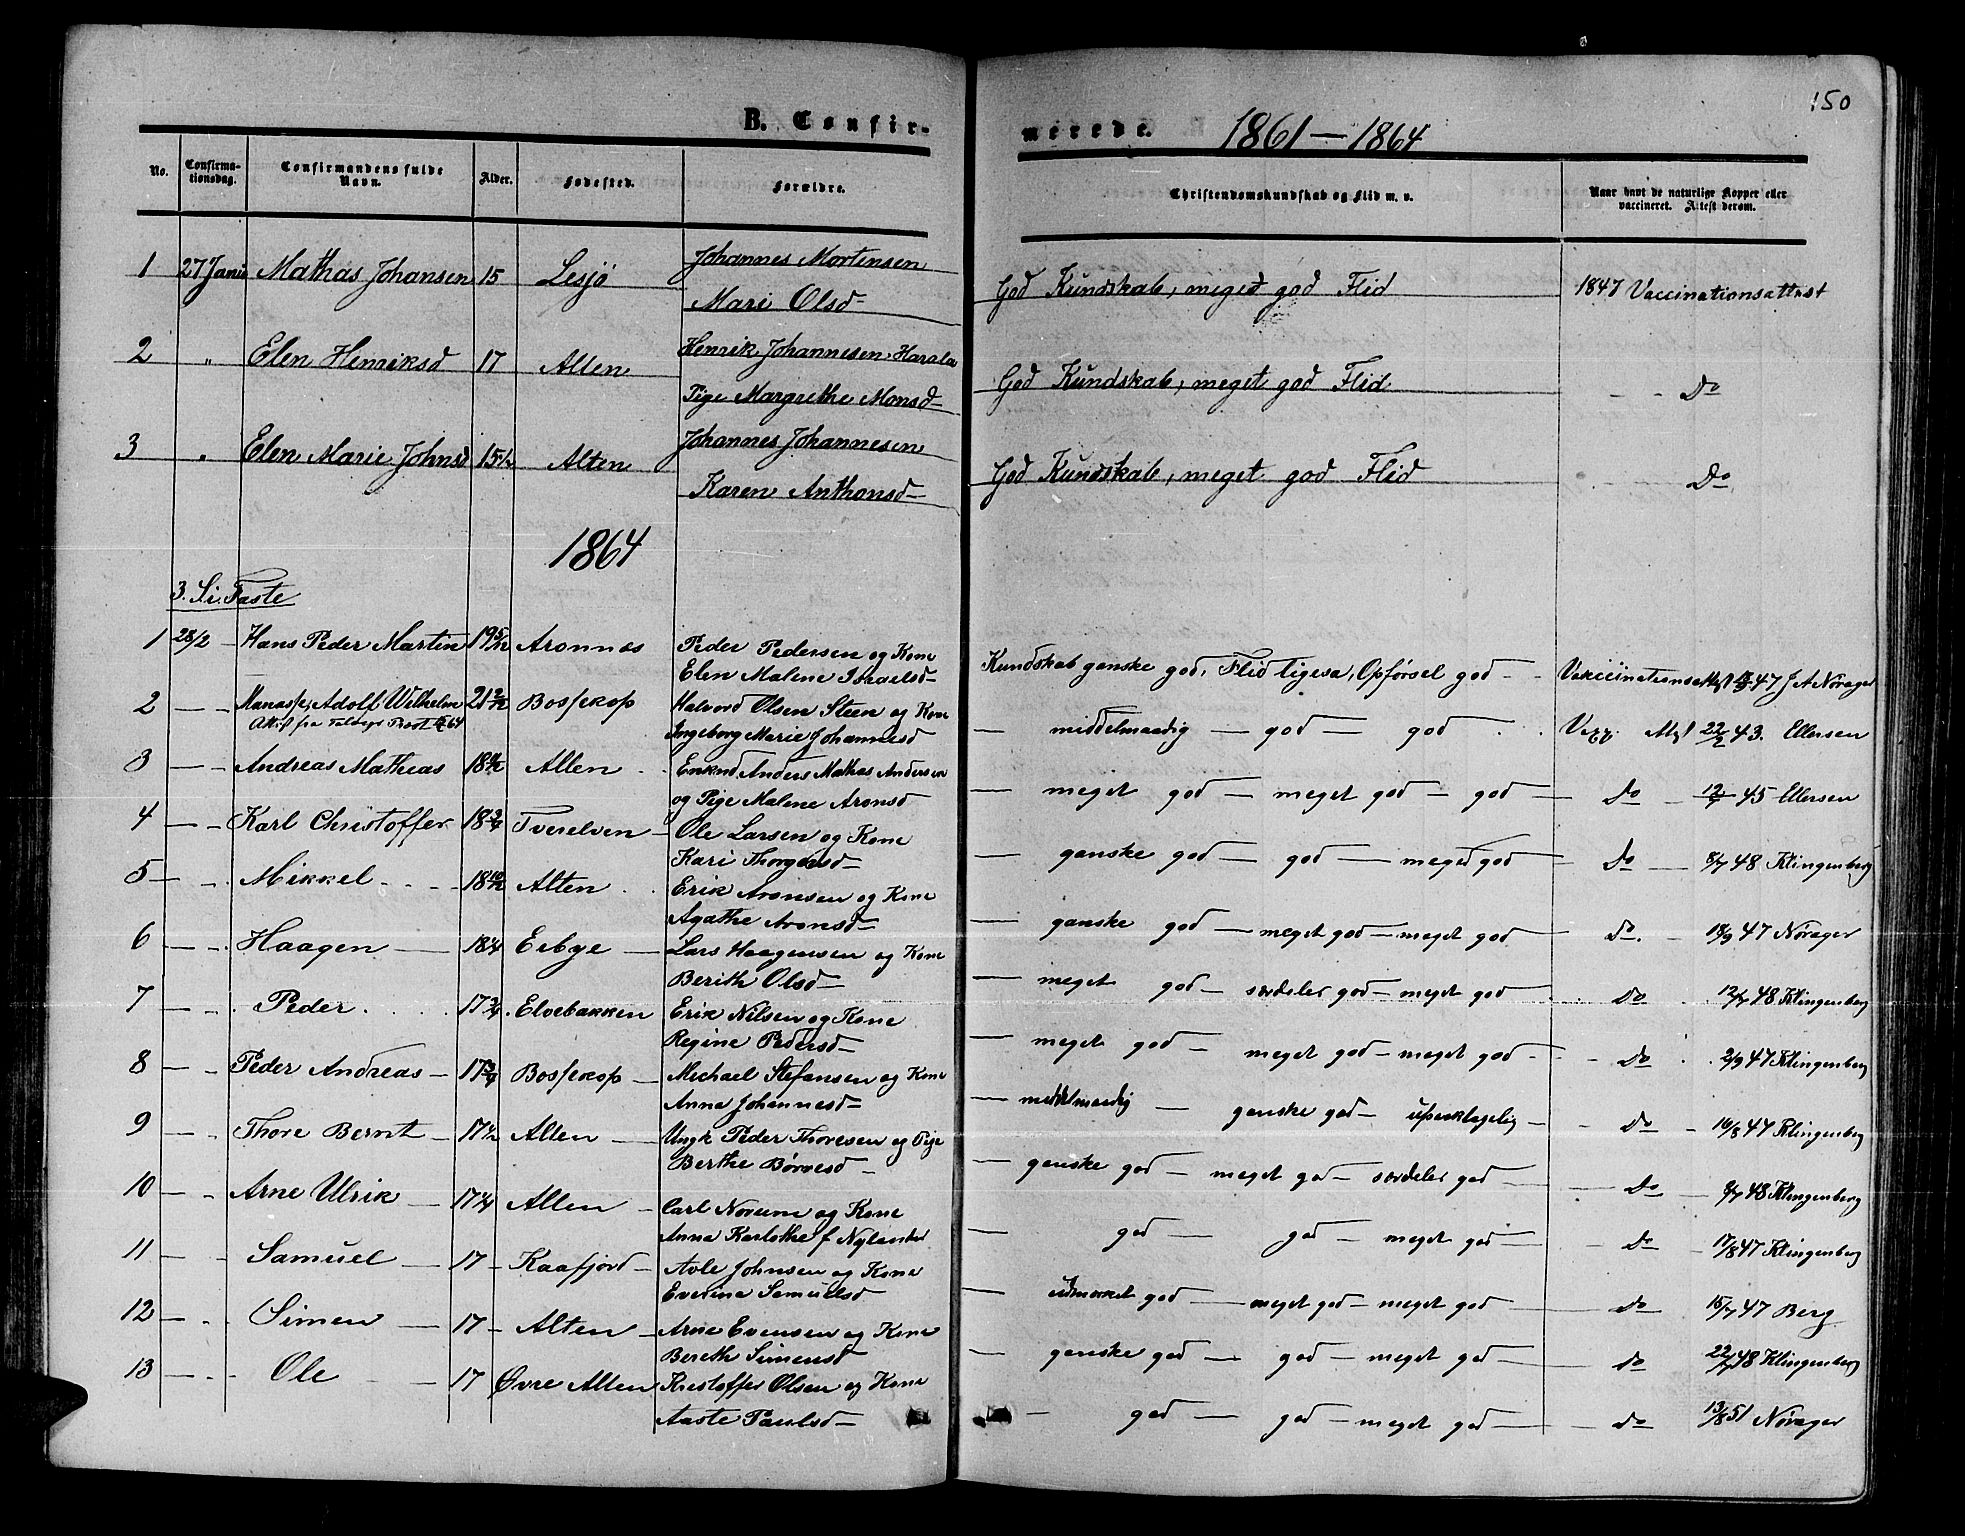 150
B. Confirmerede. 1861–1864
No. Confirmationsdag. Confirmandens fulde Navn. Alder. Fødested. Forældre. Christendomskundskab og Flid m. v. Naar havt de naturlige Kopper eller vaccineret. Attest derom.
1 27 Mathas Johansen 15 Lesjö Johannes Mortensen God Kundskab, meget god Flid 1847 Vaccinationsattest
Mari Olsd
2 " Elen Henriksd 17 Alten Henrik Johannesen God Kundskab, meget god Flid Do
Pige Margrethe Monsd
3 " Elen Marie Johnsd 15½ Alten Johannes Johannesen God Kundskab, meget god Flid Do
Karen Anthonsd
1864
3. S. i. Faste
1 28/2 – Hans Peder Martin 19 5/12 Aronnæs Peder Pedersen og Kone Kundskab ganske god, Flid ligesa, Opførsel god – 47 J A Nörager
Elen Malene Israelsd
2 – – Adolf Wilhelm 21 2/12 Bossekop Halvord Olsen Steen og Kone – middelmaadig – god – god 22/2 43. Ellersen
Ingeborg Marie Johannesd
3 – – Andreas Mathias Alten Enkmd Anders Mathas Andersen – meget god – meget god – god – Do – 45 Ellersen
og Pige Malene Aronsd
4 – – Karl Christoffer 18 3/4 Tverelven – Ole Larsen og Kone – ganske god – god – meget god – Do – 8/7 48 Klingenberg
Kari
5 – – Mikkel 18 10/12 Alten Erik Aronsen og Kone – ganske god – meget god – meget god – Do. – 18/9 47 Nörager
Agathe Aronsd
6 – – Haagen – 18¼ Eibye – Lars Haagensen og Kone – meget god – særdeles god – meget god Do 12/7 48 Klingenberg
Berith Olsd
7 – – Peder 17¾ Elvebakken Erik Nilsen og Kone – meget god – meget god – meget god – Do 2/9 47 Klingenberg
Regine Pedersd
8 – – Peder Andreas – 17¾ Bossekop – Michael Stefansen og Kone – middelmaadig – ganske god – upaaklagelig – Do – 16/8 47 Klingenberg
Anna Johannesd
9 – – Thore Bernt – 17½ Alten – Ungk Peder Thoresen og Pige – ganske god – meget god – særdeles god – Do – 48 Klingenberg
Berthe Børresd
10 – – Arne Ulrik – 17¼ Alten – Carl Norum og Kone – god – god – meget god – Do – 17/8 47 Klingenberg
Anna Karlothe f Nylander
11 – – Samuel – 17 – Kaafjord – Avle Johnsen og Kone – udmærket god – meget god – meget god – Do 15/7 47 Berg
Everina Samuelsd
12 – – Simen – 17 – Alten – Arne Evensen og Kone – ganske god – god – meget god – Do 22/7 48 Klingenberg
Bereth Simensd
13 – – Ole – 17 Øvre Alten Kristoffer Olsen og Kone – god – god – meget god – Do 13/8 51 Nörager
Aaste Paulsd